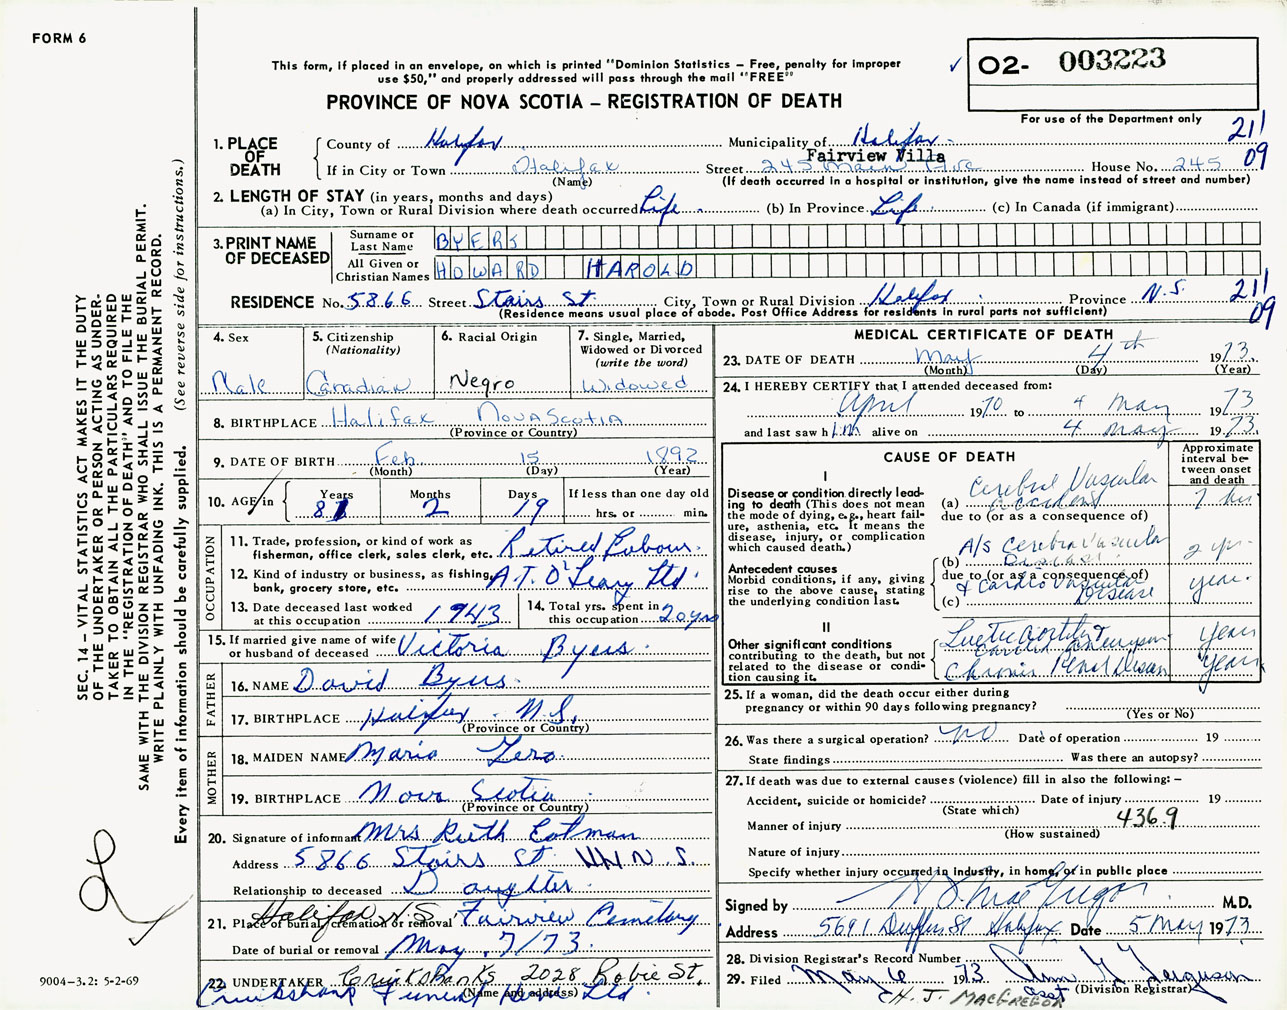 FORM 6
This form, if placed in an envelope, on which is printed "Dominion Statistics – Free, penalty for improper
use $50," and properly addressed will pass through the mail "FREE"
✓ O2- 003223
PROVINCE OF NOVA SCOTIA – REGISTRATION OF DEATH
For use of the Department only
211
09
1. PLACE OF DEATH
County of Halifax Municipality of Halifax
Fairview Villa
If in City or Town Halifax Street 245 Main Ave House No. 245
(Name) (If death occurred in a hospital or institution, give the name instead of street and number)
2. LENGTH OF STAY (in years, months and days)
(a) In City, Town or Rural Division where death occurred Life (b) In Province Life (c) In Canada (if immigrant)
3. PRINT NAME OF DECEASED
Surname or Last Name BYERS
All Given or Christian Names HOWARD HAROLD
RESIDENCE No. 5866 Street Stairs St. City, Town or Rural Division Halifax Province N.S.
211
09
(Residence means usual place of abode. Post Office Address for residents in rural parts not sufficient)
4. Sex Male
5. Citizenship (Nationality) Canadian
6. Racial Origin Negro
7. Single, Married, Widowed or Divorced (write the word) Widowed
8. BIRTHPLACE Halifax Nova Scotia
(Province or Country)
9. DATE OF BIRTH Feb 15 1892
(Month) (Day) (Year)
10. AGE in Years 81 Months 2 Days 19 If less than one day old
hrs. or min.
OCCUPATION
11. Trade, profession, or kind of work as
fisherman, office clerk, sales clerk, etc. Retired Labour
12. Kind of industry or business, as fishing,
bank, grocery store, etc. A.T. O'Leary Ltd.
13. Date deceased last worked
at this occupation 1943
14. Total yrs. spent in
this occupation 20 yrs
15. If married give name of wife
or husband of deceased Victoria Byers
FATHER
16. NAME David Byers
17. BIRTHPLACE Halifax N.S.
(Province or Country)
MOTHER
18. MAIDEN NAME Maria
19. BIRTHPLACE Nova Scotia
(Province or Country)
20. Signature of informant Mrs Ruth
Address 5866 Stairs St. N.S.
Relationship to deceased Daughter
21. Place of burial, cremation or removal Halifax N.S. Fairview Cemetery
Date of burial or removal May 7/73
22. UNDERTAKER Cruikshanks 2028 Robie St.
(Name and address)
Cruikshank Funeral Home Ltd.
MEDICAL CERTIFICATE OF DEATH
23. DATE OF DEATH May 4th 1973
(Month) (Day) (Year)
24. I HEREBY CERTIFY that I attended deceased from:
April 1970 to 4 May 1973
and last saw him alive on 4 May 1973
CAUSE OF DEATH
Approximate interval between onset and death
I
Disease or condition directly leading to death (This does not
mean the mode of dying, e.g., heart failure, asthenia, etc. It means the
disease, injury, or complication
which caused death.)
(a) Cerebral Vascular accident
due to (or as a consequence of)
Antecedent causes
Morbid conditions, if any, giving
rise to the above cause, stating
the underlying condition last.
(b) A/S Cerebral Vascular Disease 2 yr.
due to (or as a consequence of)
(c) & Cardio Vascular Disease year.
II
Other significant conditions
contributing to the death, but not
related to the disease or condition causing it.
Luetic aortitis &
Chronic Renal Disease
years
years
25. If a woman, did the death occur either during
pregnancy or within 90 days following pregnancy?
(Yes or No)
26. Was there a surgical operation? no Date of operation 19
State findings Was there an autopsy?
27. If death was due to external causes (violence) fill in also the following: –
Accident, suicide or homicide? Date of injury 19
(State which)
Manner of injury 436.9
(How sustained)
Nature of injury
Specify whether injury occurred in industry, in home, or in public place
Signed by H J MacGregor M.D.
Address 5691 Duffus St Halifax Date 5 May 1973
28. Division Registrar's Record Number
29. Filed May 6 1973 Ann Ferguson
asst (Division Registrar)
H. J. MACGREGOR
SEC. 14 – VITAL STATISTICS ACT MAKES IT THE DUTY
OF THE UNDERTAKER OR PERSON ACTING AS UNDER-
TAKER TO OBTAIN ALL THE PARTICULARS REQUIRED
IN THE "REGISTRATION OF DEATH" AND TO FILE THE
SAME WITH THE DIVISION REGISTRAR WHO SHALL ISSUE THE BURIAL PERMIT.
WRITE PLAINLY WITH UNFADING INK. THIS IS A PERMANENT RECORD.
Every item of information should be carefully supplied. (See reverse side for instructions.)
9004–3.2: 5-2-69